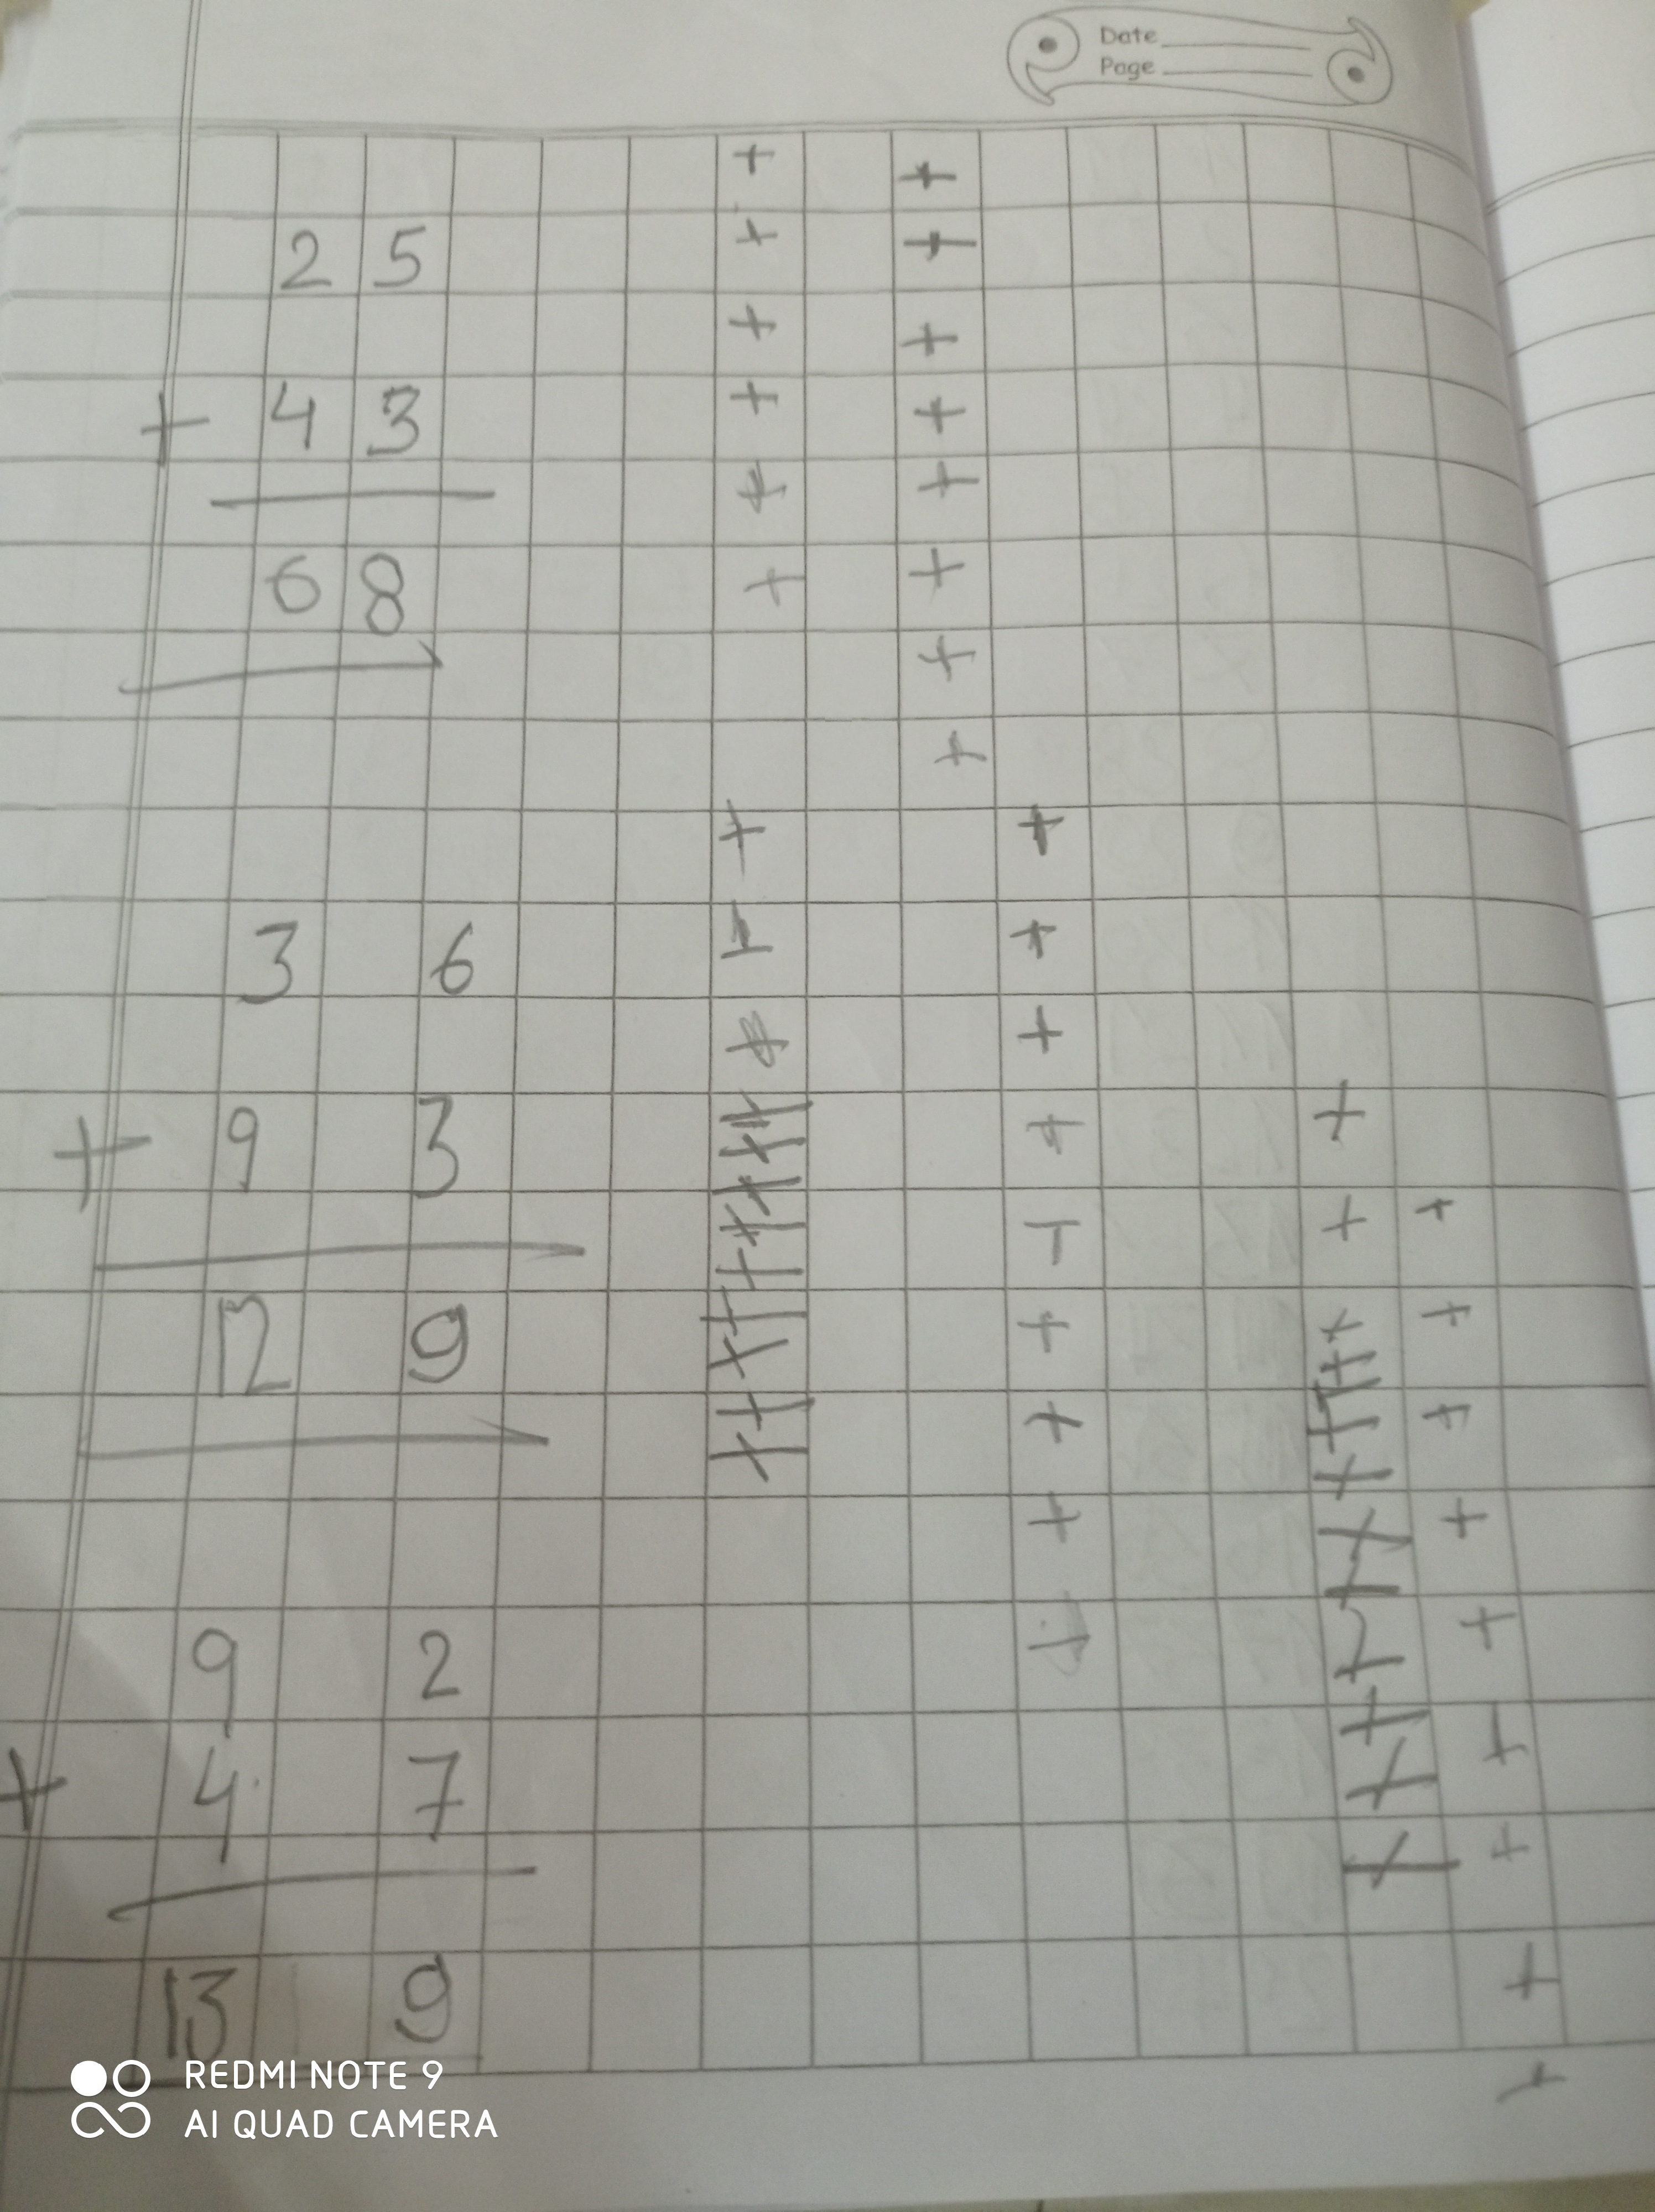 Date
Page
2 5
+ 4 3
6 8
3 6
+ 9 3
12 9
9 2
+ 4 7
13 9
REDMI NOTE 9
AI QUAD CAMERA